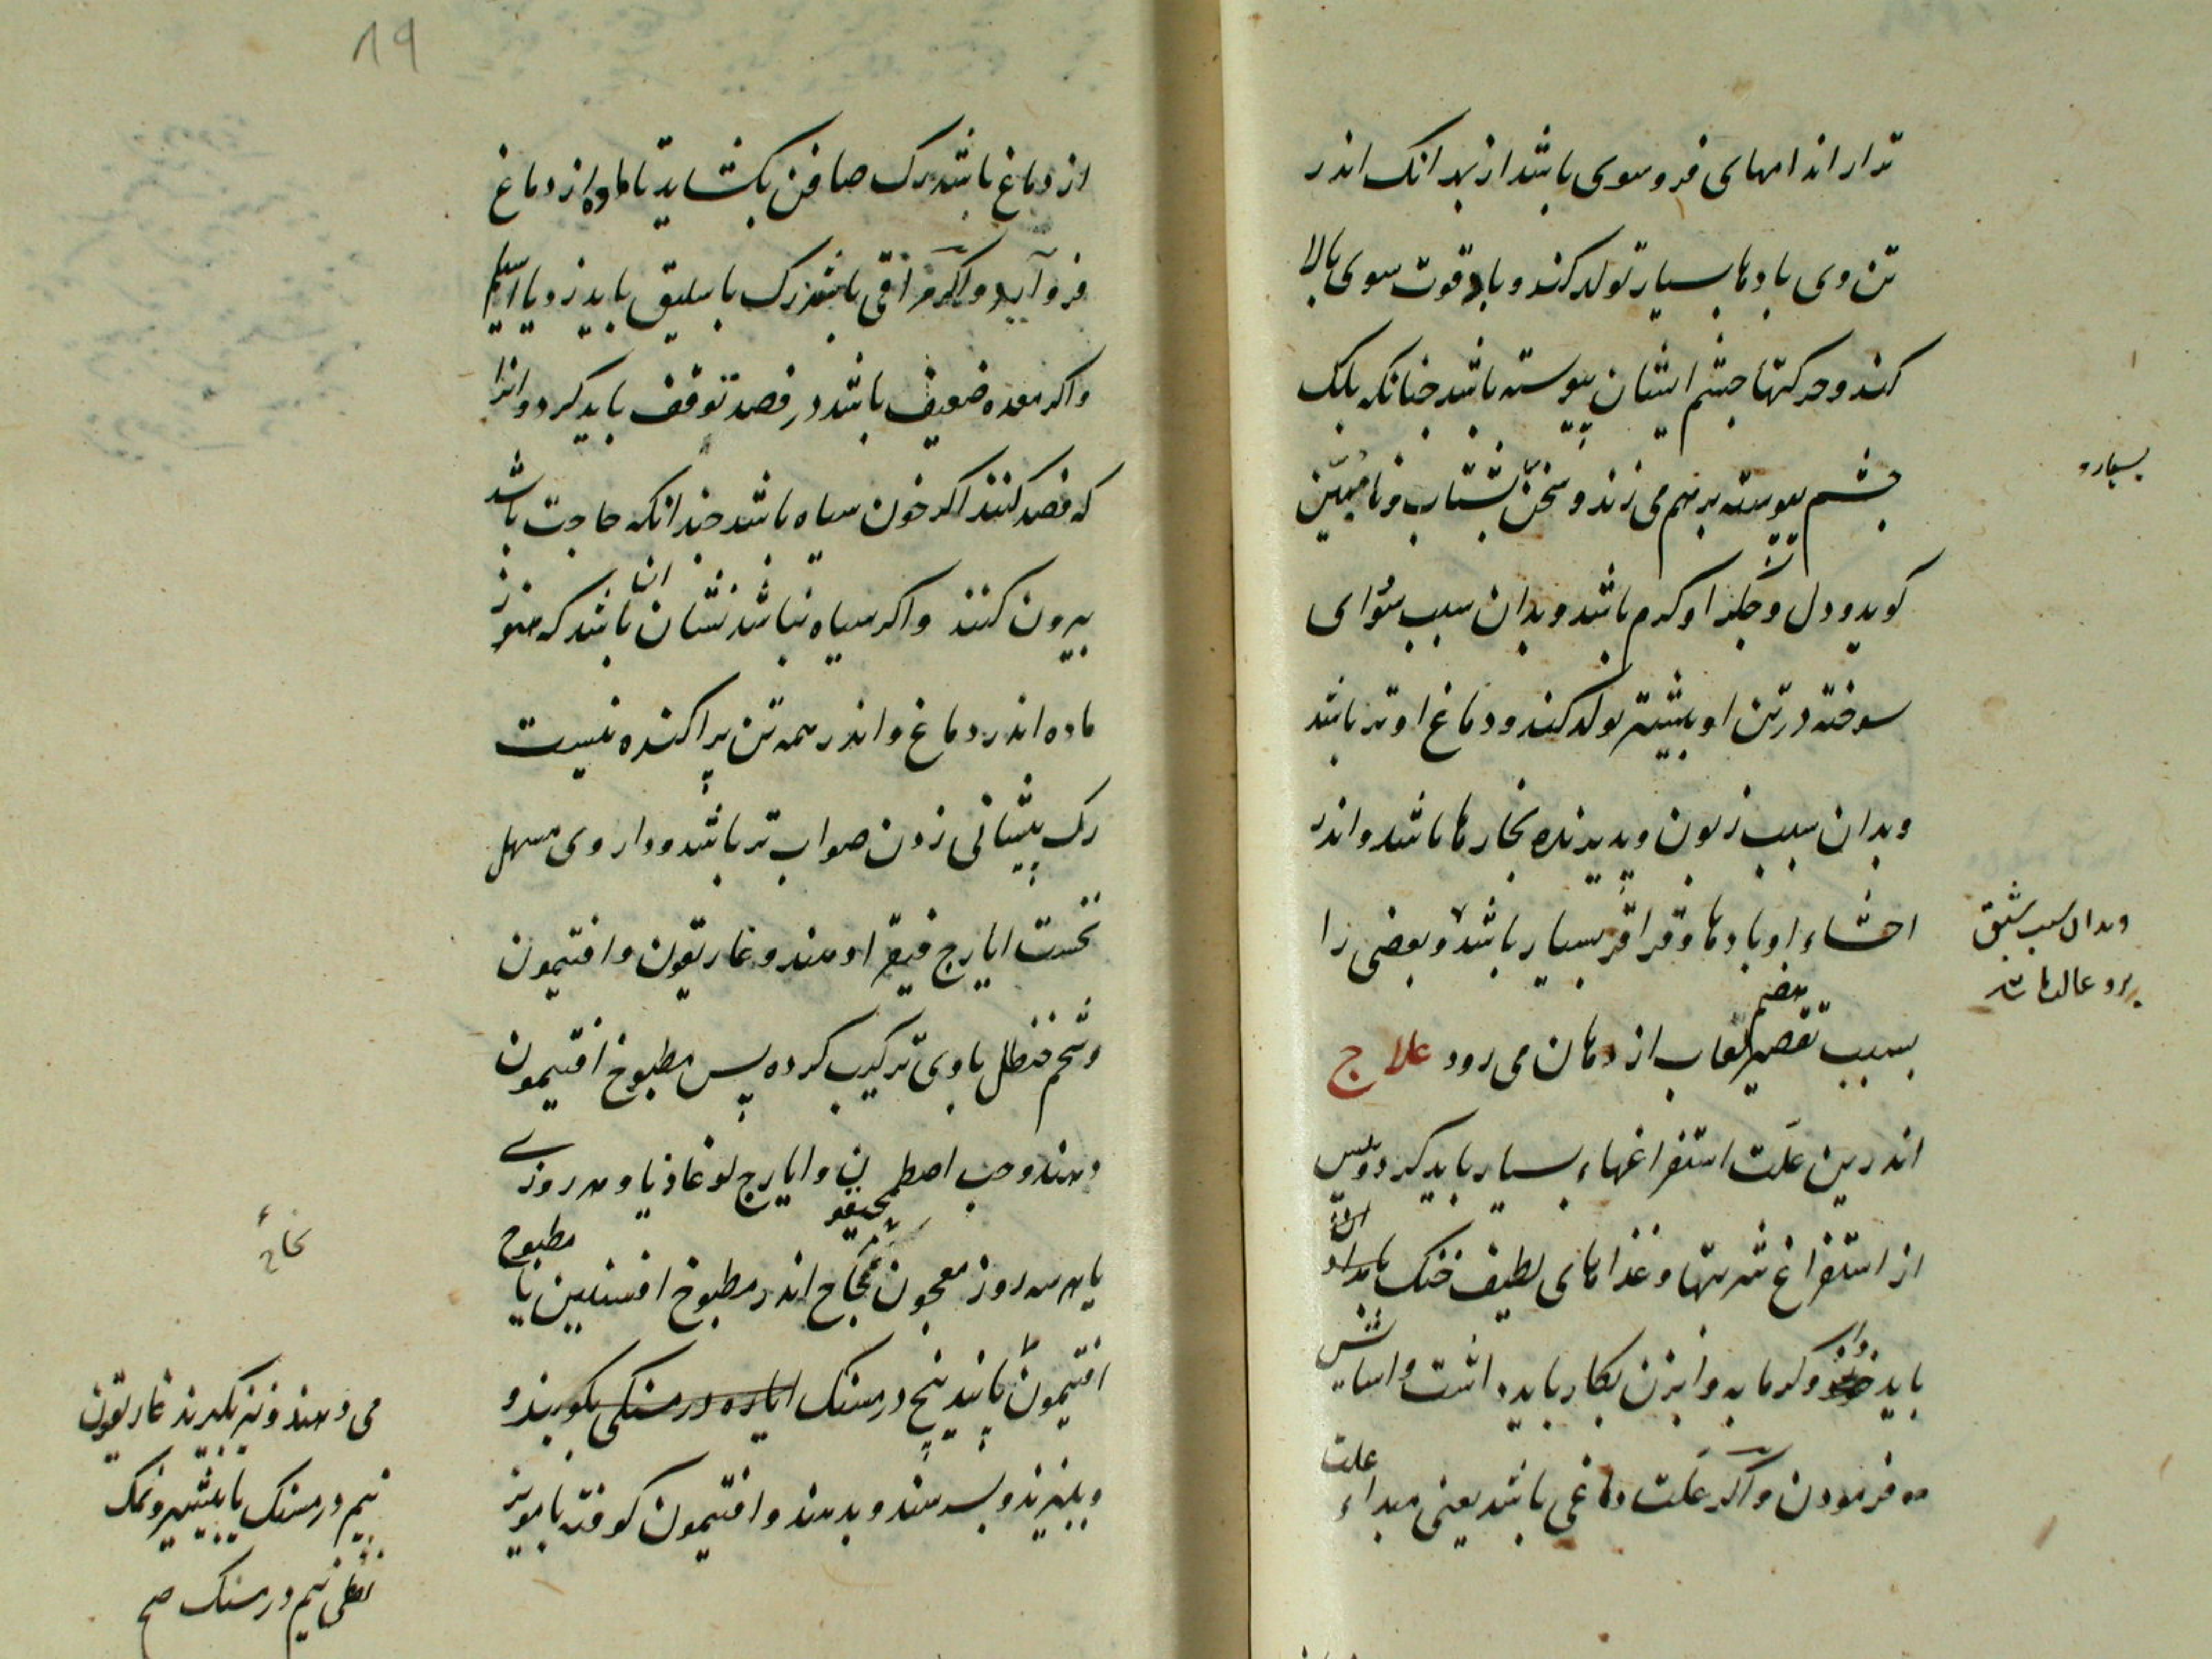 تر از اندامهای فروسوی باشد از بهر انک اندر
تن وی بادها بسیار تولد کند و باد قوت سوی بالا
کند و حرکتها جشم ایشان پیوسته باشد جنانکه بلک
جشم پیوسته بر هم می زند و سخن بشتاب و نا مبین
کوید و دل و جکر او کرم باشد و بدان سبب سودای
سوخته در تن او بیشتر تولد کند و دماغ او تر باشد
و بدان سبب زبون و پذیرنده بخارها باشد و اندر
احشاء او بادها و قراقر بسیار باشد و بعضی را
بسبب تقصیر هضم لعاب از دهان می رود علاج
اندرین علت استفراغهاء بسیار باید کرد و پس
از استفراغ شربتها و غذاهای لطیف خنک
باید و کرمابه و ابزن بکار باید داشت و اسایش
فرمودن و اکر علت دماغی باشد یعنی مبداء علت
وبدان سبب شبق
برو غالب باشد
19
از دماغ باشد رک صافن بکشاید تا ماده از دماغ
فرو آید و اکر مراقی باشد رک باسلیق باید زد یا اسیلم
و اکر معده ضعیف باشد در فصد توقف باید کرد و انرا
که فصد کنند اکر خون سیاه باشد جندانکه حاجت باشد
بیرون کنند و اکر سیاه نباشد نشان ان باشد که هنوز
ماده اندر دماغ و اندر همه تن پراکنده نیست
رک پیشانی زدن صواب تر باشد و داروی مسهل
نخست ایارج فیقرا دهند و غاریقون و افتیمون
و شحم حنظل با وی ترکیب کرده پس مطبوخ افتیمون
دهند و حب اصطمخیقون و ایارج لوغاذیا و هر روزی
یا هر سه روز معجون نجاح اندر مطبوخ افسنتین یا مطبوخ
افتیمون پانید پنج درمسنک ایاره درمسنکی بکوبند و
و ببیزند و بسرشند و بدهند و افتیمون کوفته با مویز
نجاح
می دهند و نیز بکیرند غاریقون
نیم درمسنک یا بیشتر و نمک
نفطی نیم درمسنک صح